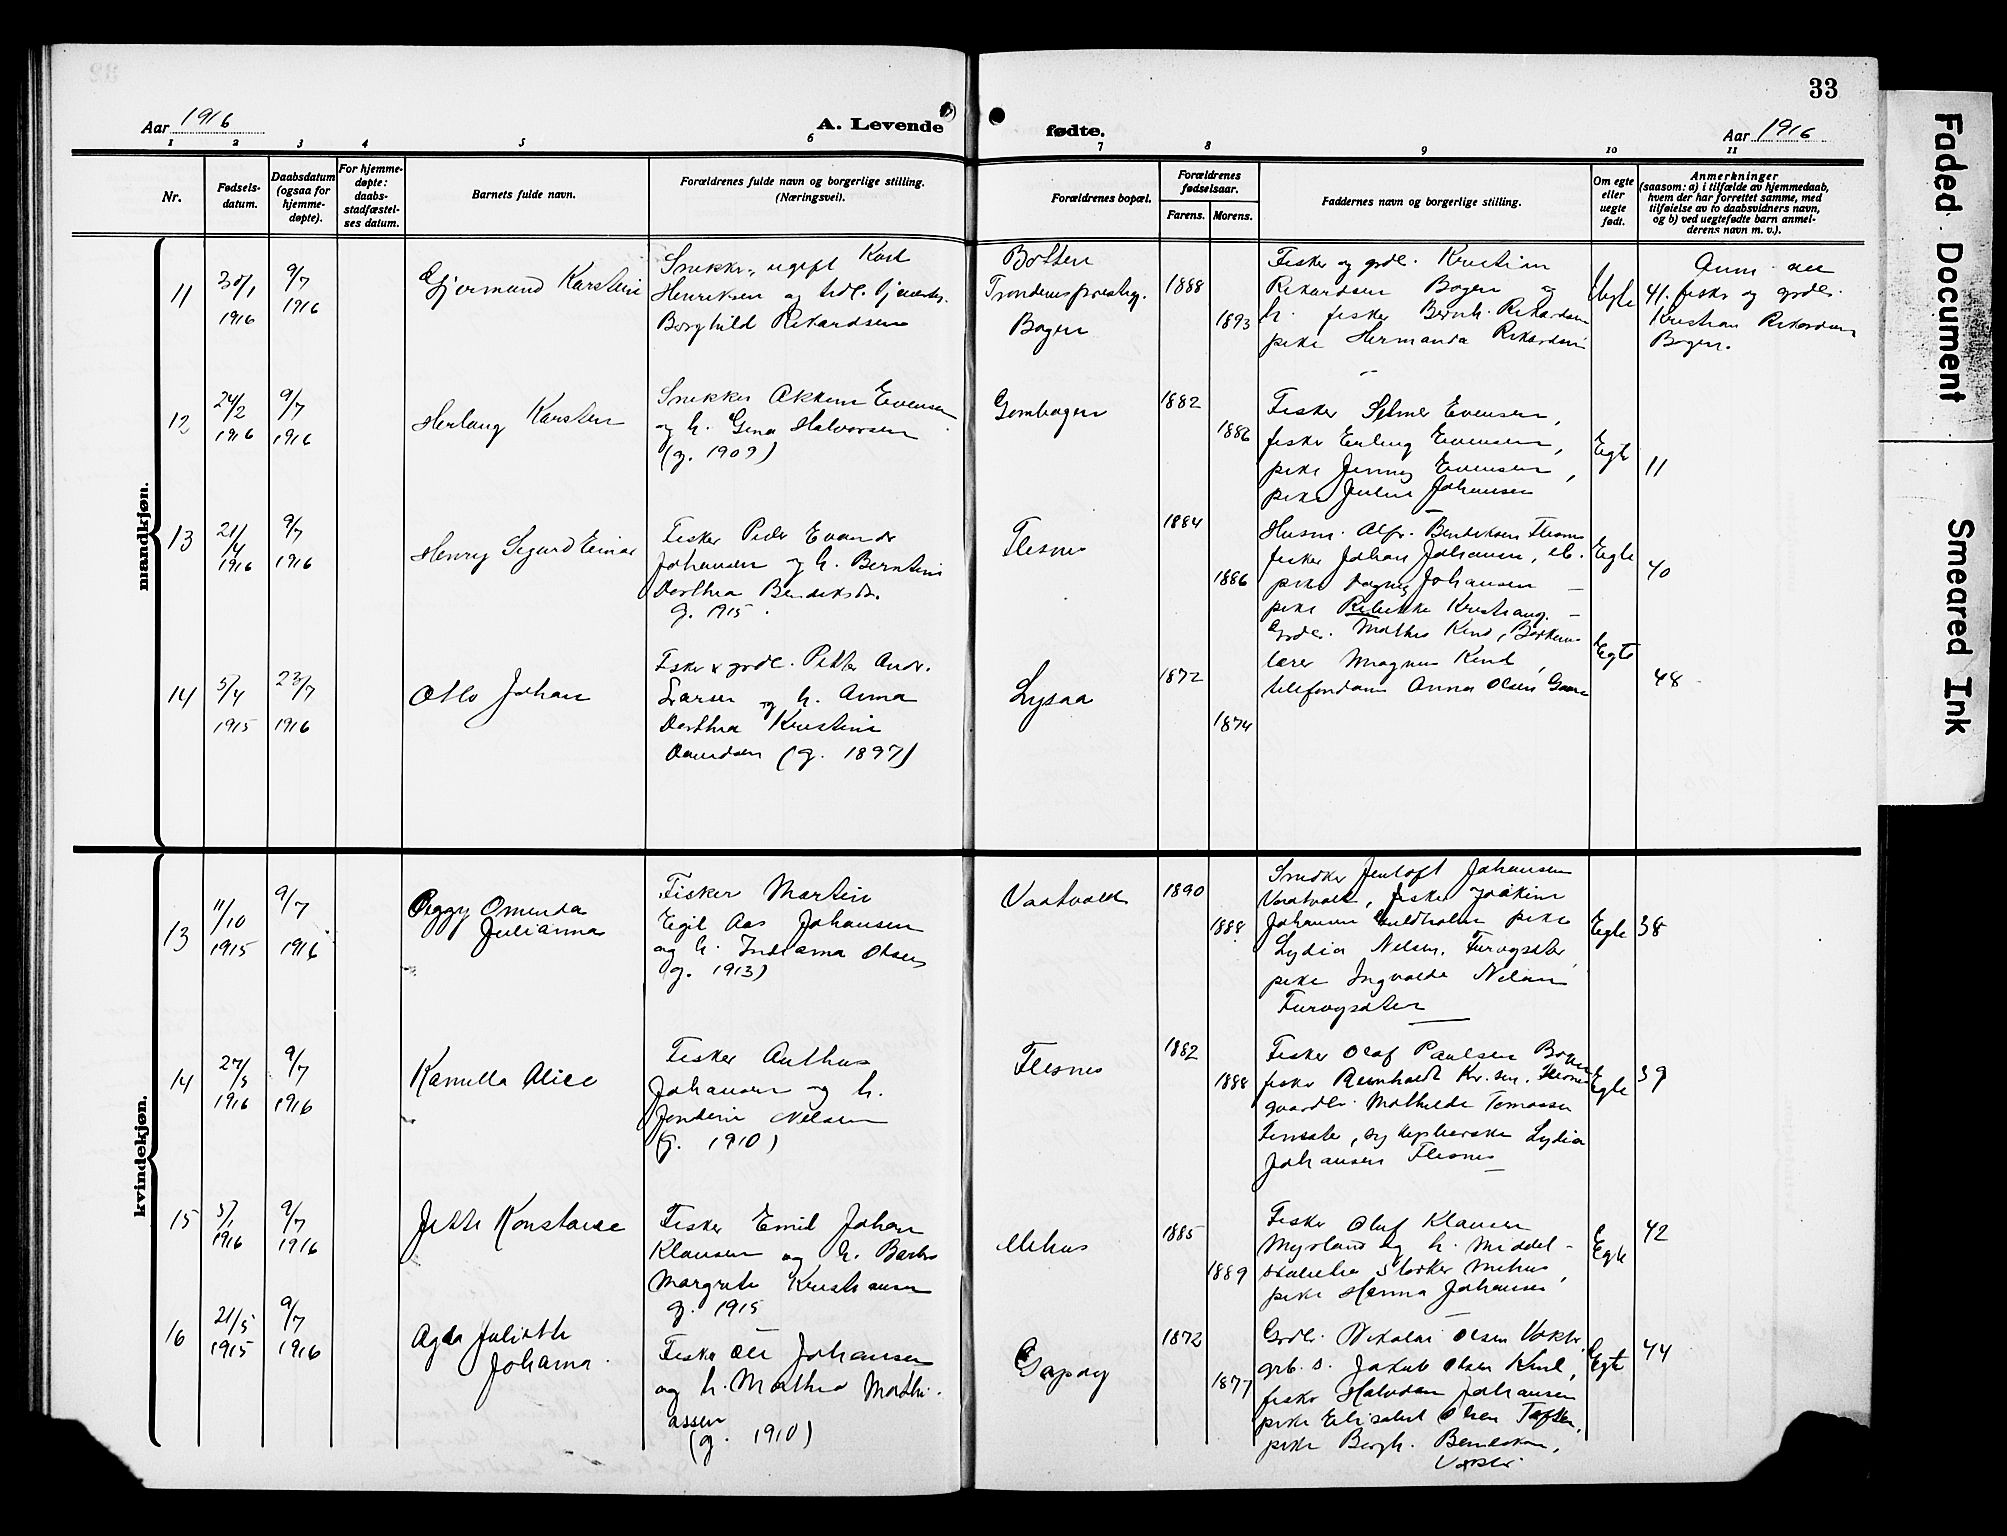 33
Aar 1916
A. Levende
fødte.
Aar 1916
1 2 3 4 5 6 7 8 9 10 11
Nr.
Fødsels-
datum.
Daabsdatum
(ogsaa for
hjemme-
døpte).
For hjemme-
døpte:
daabs-
stadfæstel-
ses datum.
Barnets fulde navn.
Forældrenes fulde navn og borgerlige stilling.
(Næringsvei).
Forældrenes bopæl.
Forældrenes
fødselsaar.
Farens. Morens.
Faddernes navn og borgerlige stilling.
Om egte
eller
uegte
født.
Anmerkninger
(saasom: a) i tilfælde av hjemmedaab,
hvem der har forrettet samme, med
tilføielse av to daabsvidners navn,
og b) ved uegtefødte barn anmel-
derens navn m. v.).
mandkjøn.
11
30/1
1916
9/7
1916
Gjermund Karstein
Snekker, ugift Karl
Henriksen og
Borghild Rikardsen
Botten
Trondenes prestegj.
Bogen
1888
1893
Fisker og grdl. Kristian
Rikardsen Bogen og
h. fisker Bernh. Rikardsen
pike Hermanda Rikardsen
Uegte
Anm. av
41. fisker og grdbr.
Kristian Rikardsen
Bogen.
12
24/2
1916
9/7
1916
Herlaug Karsten
Snekker Evensen
og h. Gina Halvorsen
(g. 1909)
Gombogen
1882
1886
Fisker Selmer Evensen,
fisker Erling Evensen,
pike Jenny Evensen,
pike Johansen
Egte
11
13
21/4
1916
9/7
1916
Henry Sigurd Einar
Fisker Peder Evander
Johansen og h. Berntine
Dorthea Bendiksen
g. 1915.
Flesnes
1884
1886
Husm. Alfr. Bendiksen Flesnes
fisker Johan Johansen, ib.
pike Dagny Johansen –
pike Kristians. –
Egte
40
14
5/4
1915
23/7
1916
Otto Johan
Fisker & grdl. Petter Andr.
Larsen og h. Anna
Dorthea Kristine
(g. 1897)
Lysaa
1872
1874
Grdbr. Mathis Kind,
lærer Magnus Kind,
telefondam Anna Olsen
Egte
48
kvindekjøn.
13
11/10
1915
9/7
1916
Peggy Omenda
Julianna
Fisker Martin
Egil Aas Johansen
og h. Indiana Olsen
(g. 1913)
Vaatvold
1890
1888
Snekker Jentoft Johansen
Vaatvold, fisker Joakim
Johansen Guldholm pike
Lydia Nilsen, Furøysæter,
pike Ingvalda Nilsen
Furøysæter
Egte
38
14
27/3
1916
9/7
1916
Kamilla Alice
Fisker Anthus
Johansen og h.
Jondine Nelsen
(g. 1910)
Flesnes
1882
1888
Fisker Olaf Paulsen Bogen
fisker Reinholdt Kr.sen. Flesnes
gaardbr. Mathilde Tomassen
, syHeplærske Lydia
Johansen Flesnes
Egte
39
15
5/1
1916
9/7
1916
Jette Konstanse
Fisker Emil Johan
Klausen og h. Barbro
Margrete Kristiansen
g. 1915
Mehus
1885
1889
Fisker Oluf Klausen
Myrland og h. Middel-
Mehus,
pike Hanna Johansen
Egte
42
16
21/5
1915
9/7
1916
Agda Juliette
Johanna.
Fisker Ole Johansen
og h. Mathea Mathi-
assen
(g. 1910)
Gapøy
1872
1877
Grdbr. Nikolai Olsen
grb. s. Jakob Olsen Kind,
fisker Halvdan Johansen
pike Elisabet Olsen
pike Bergh. Bendiksen,
Egte
44
Faded Document
Smeared Ink